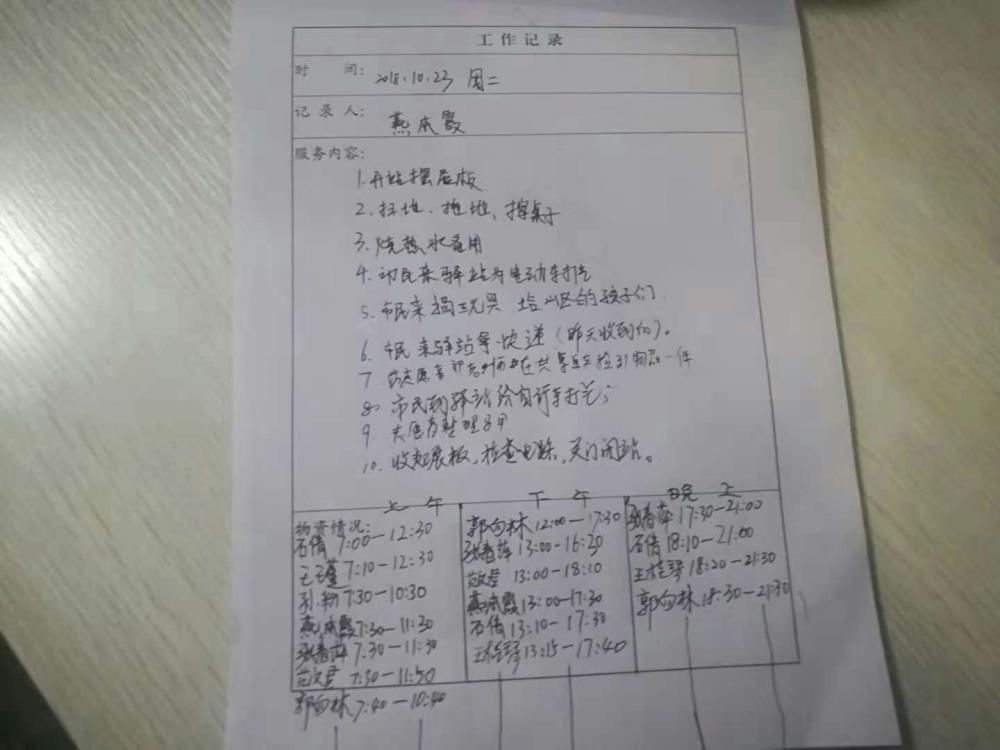 工作记录
时 间: 2018.10.23 周二
记录人: 燕本霞
服务内容:
1.开站摆展板
2、扫地、拖地、擦桌子
3、烧热水备用
4、市民来驿站为电动车打气
5、市民来捐玩具 给山区的孩子们
6、市民来驿站拿快递(昨天收到的)。
7 在共享单车捡到物品一件
8、市民到驿站给自行车打气;
9 志愿者整理
10、收起展板,检查电路,关门闭站。
上 午
物资情况:
石倩 7:00-12:30
7:10-12:30
7:30-10:30
燕本霞 7:30-11:30
张春萍 7:30-11:30
7:30-11:50
郭向林 7:40-10:40
下 午
郭向林 12:00-17:30
张春萍 13:00-16:30
13:00-18:10
燕本霞 13:00-17:30
石倩 13:10-17:30
王桂琴 13:15-17:40
晚 上
张春萍 17:30-21:00
石倩 18:10-21:00
王桂琴 18:20-21:30
郭向林 18:30-21:30